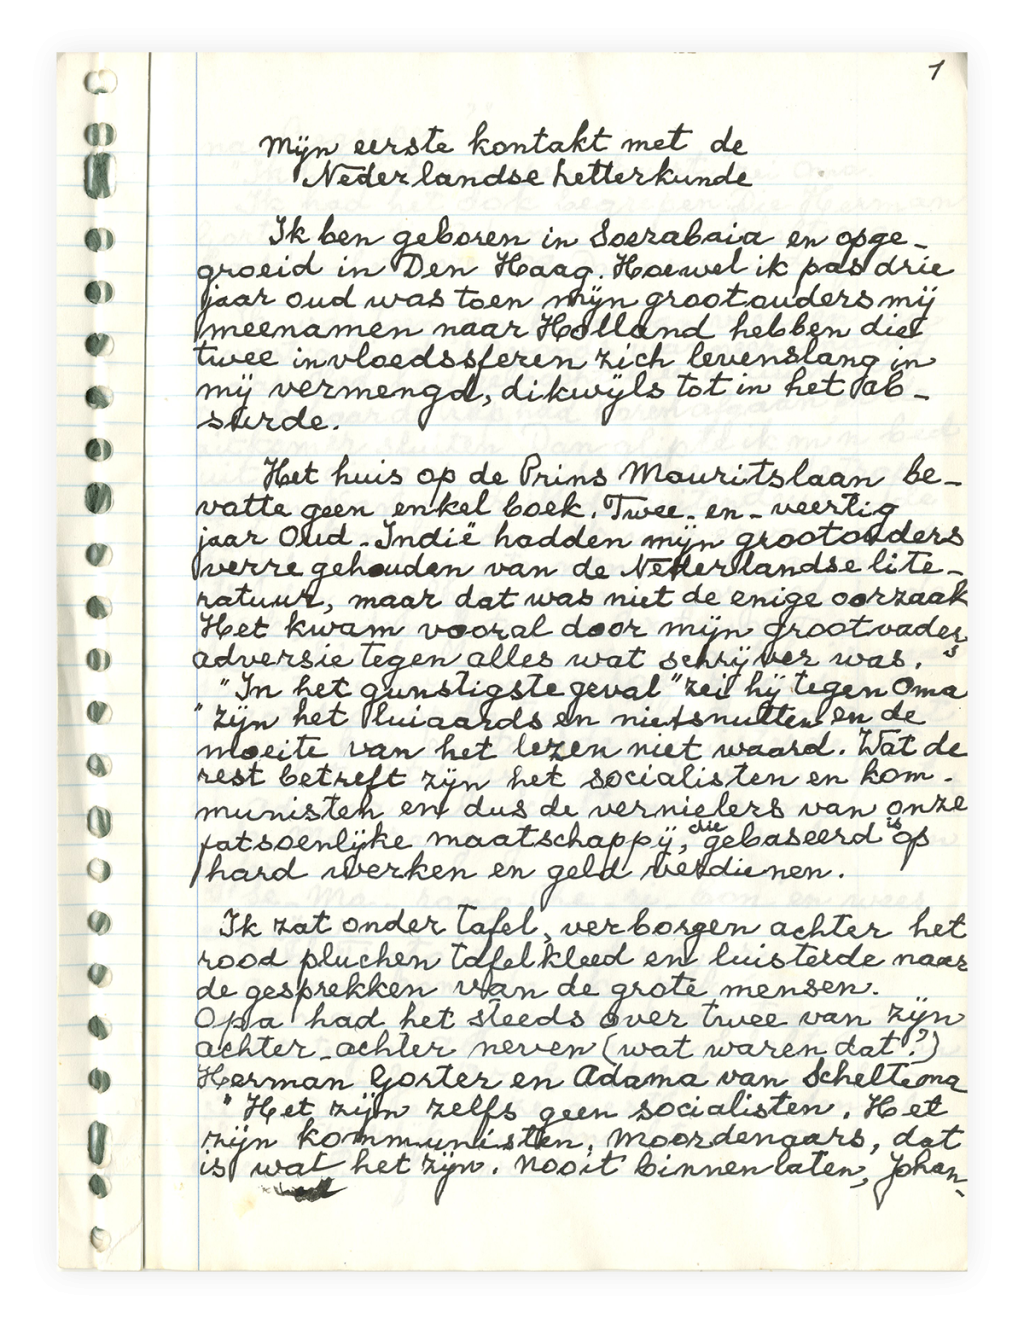 1
Mijn eerste kontakt met de
Nederlandse Letterkunde
Ik ben geboren in Soerabaia en opge-
groeid in Den Haag. Hoewel ik pas drie
jaar oud was toen mijn grootouders mij
meenamen naar Holland hebben die
twee invloedssferen zich levenslang in
mij vermengd, dikwijls tot in het ab-
surde.
Het huis op de Prins Mauritslaan be-
vatte geen enkel boek. Twee-en-veertig
jaar Oud-Indië hadden mijn grootouders
verre gehouden van de Nederlandse lite-
ratuur, maar dat was niet de enige oorzaak
Het kwam vooral door mijn grootvaders
adversie tegen alles wat schrijver was.
"In het gunstigste geval" zei hij tegen Oma
"zijn het luiaards en nietsnutten en de
moeite van het lezen niet waard. Wat de
rest betreft zijn het socialisten en kom-
munisten en dus de vernielers van onze
fatsoenlijke maatschappij, die gebaseerd is op
hard werken en geld verdienen.
Ik zat onder tafel, verborgen achter het
rood pluchen tafelkleed en luisterde naar
de gesprekken van de grote mensen.
Opa had het steeds over twee van zijn
achter-achter neven (wat waren dat?)
Herman Gorter en Adama van Scheltema
"Het zijn zelfs geen socialisten. Het
zijn kommunisten, moordenaars, dat
is wat het zijn. Nooit binnenlaten, Johan-